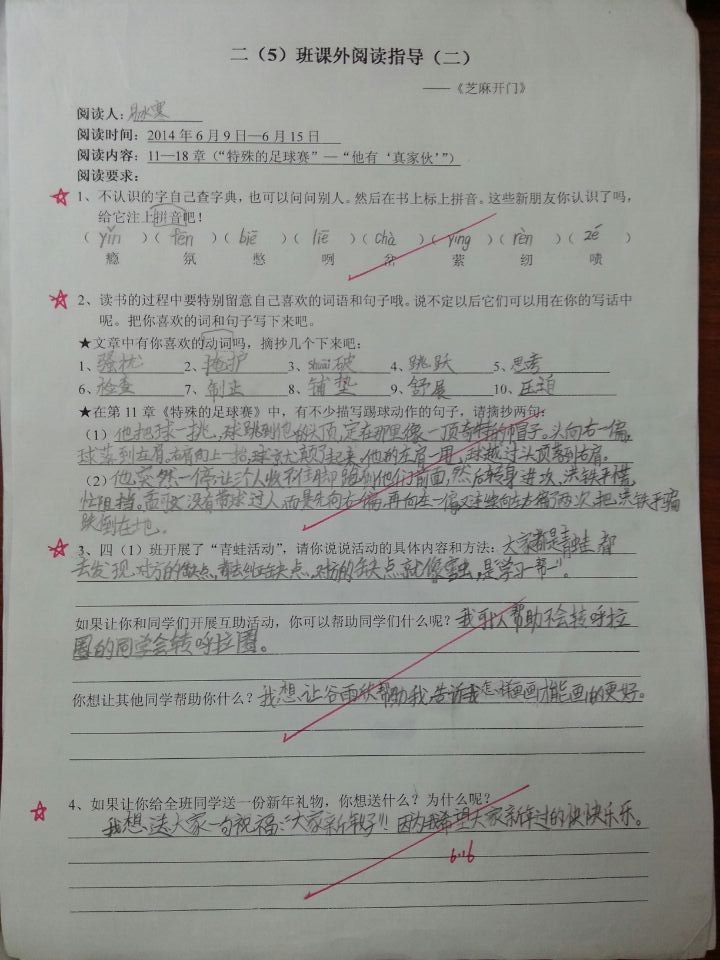 二（5）班课外阅读指导（二）
——《芝麻开门》
阅读人：
阅读时间：2014年6月9日—6月15日
阅读内容：11—18章（“特殊的足球赛”—“他有‘真家伙’”）
阅读要求：
1、不认识的字自己查字典，也可以问问别人。然后在书上标上拼音。这些新朋友你认识了吗，
给它注上拼音吧！
（yǐn）（fēn）（biē）（liē）（chà）（yíng）（rèn）（zé）
瘾 氛 憋 咧 岔 萦 纫 啧
2、读书的过程中要特别留意自己喜欢的词语和句子哦。说不定以后它们可以用在你的写话中
呢。把你喜欢的词和句子写下来吧。
★文章中有你喜欢的动词吗，摘抄几个下来吧：
1、骚扰 2、掩护 3、shuāi破 4、跳跃 5、思考
6、检查 7、制止 8、铺垫 9、舒展 10、压迫
★在第11章《特殊的足球赛》中，有不少描写踢球动作的句子，请摘抄两句：
（1）他把球一挑，球跳到他的头顶，定在那里像一顶奇特的帽子。头向右一偏，
球落到右肩，右肩向上一抬，球立颠了起来，他的左肩一甩，球越过头顶落到右肩。
（2）他突然一停，让三个人收不住脚跑到他们前面，然后转身进攻，洪铁平慌
忙阻挡。没有带球过人，而是先向右一偏，再向左一偏，又连续向左右偏了两次，把洪铁平骗
跌倒在地。
3、四（1）班开展了“青蛙活动”，请你说说活动的具体内容和方法：大家都是青蛙，都
去发现对方的缺点，都去纠正缺点，对方的缺点就像害虫，是“学习一帮一”。
如果让你和同学们开展互助活动，你可以帮助同学们什么呢？我可以帮助不会转呼拉
圈的同学会转呼拉圈。
你想让其他同学帮助你什么？我想让谷雨欣帮助我，告诉我怎样画画才能画的更好。
4、如果让你给全班同学送一份新年礼物，你想送什么？为什么呢？
我想送大家一句祝福：“大家新年好”！因为我希望大家新年过的快快乐乐。
6.16